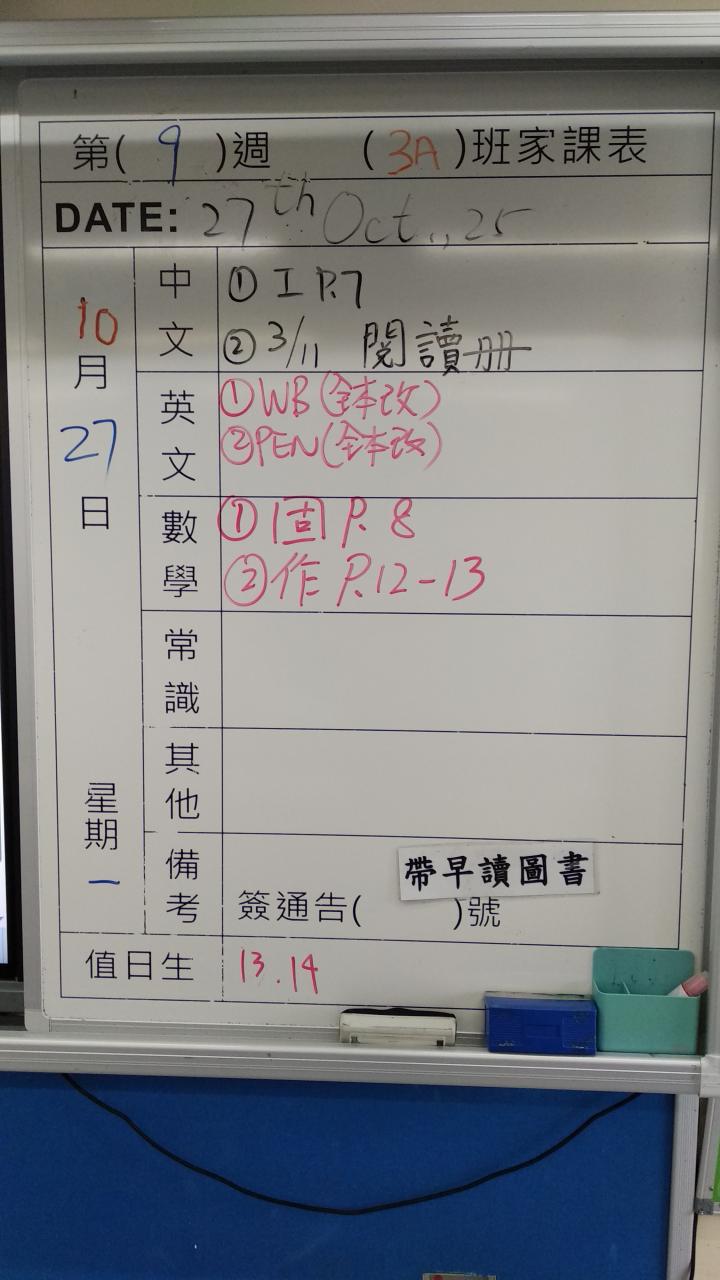 第( 9 )週 ( 3A )班家課表
DATE: 27th Oct., 25
10月27日 星期一
中文 ① I P.7
② 3/11 閱讀册
英文 ① WB (全本改)
② PEN (全本改)
數學 ① 固 P. 8
② 作 P.12-13
常識
其他
備考 帶早讀圖書
簽通告( )號
值日生 13.14